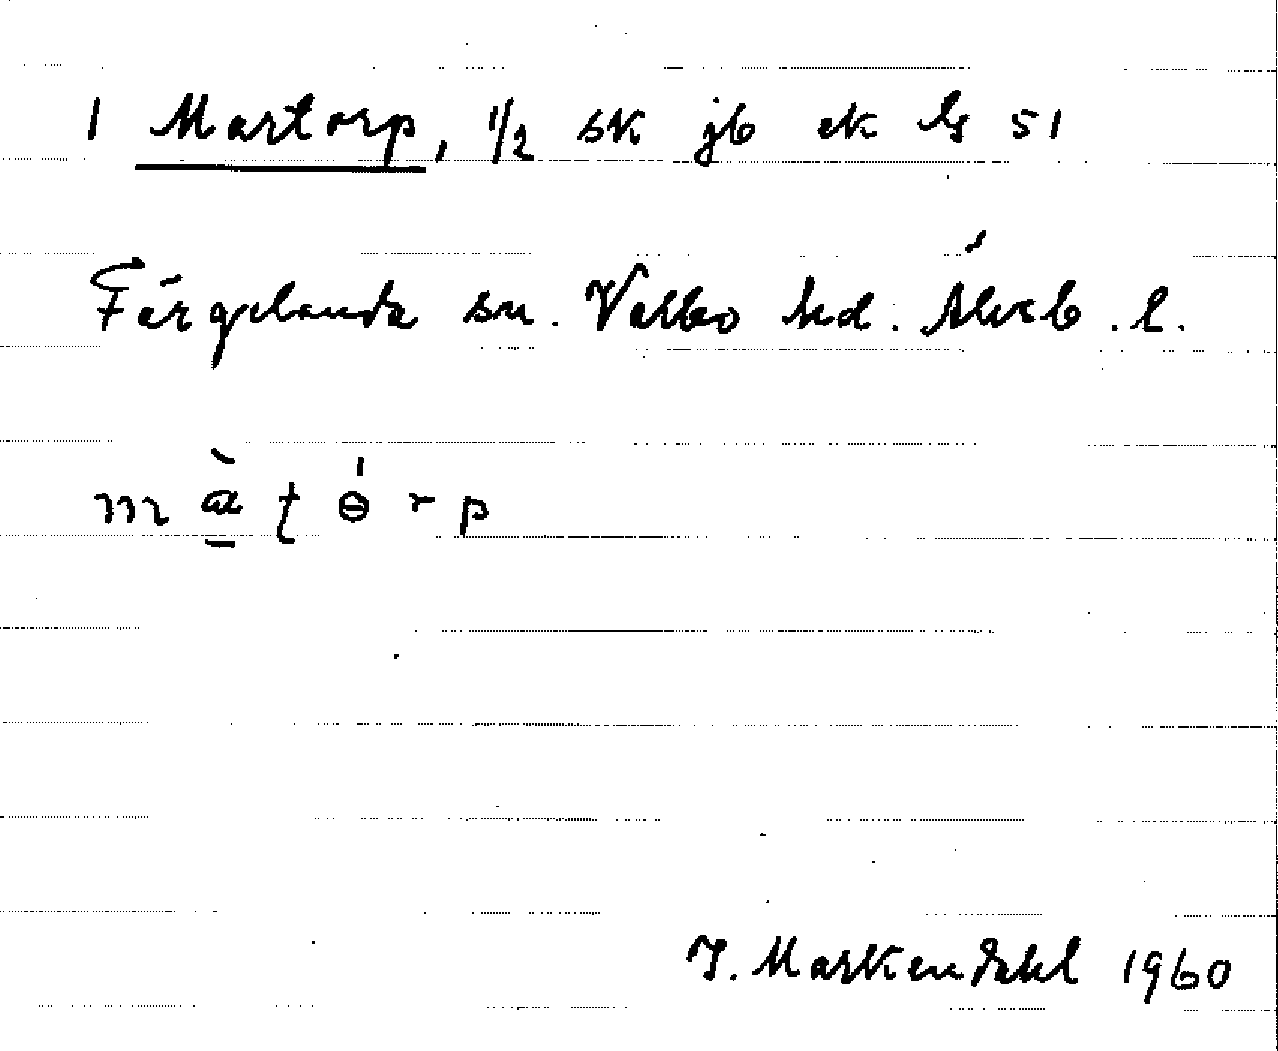 1 Martorp, 1/2 sk jb ek ls 51
Färgelanda sn. Valbo hd. Älvsb. l.
m æ̱̀ ʈ ɵ́ r p
J. Markendahl 1960